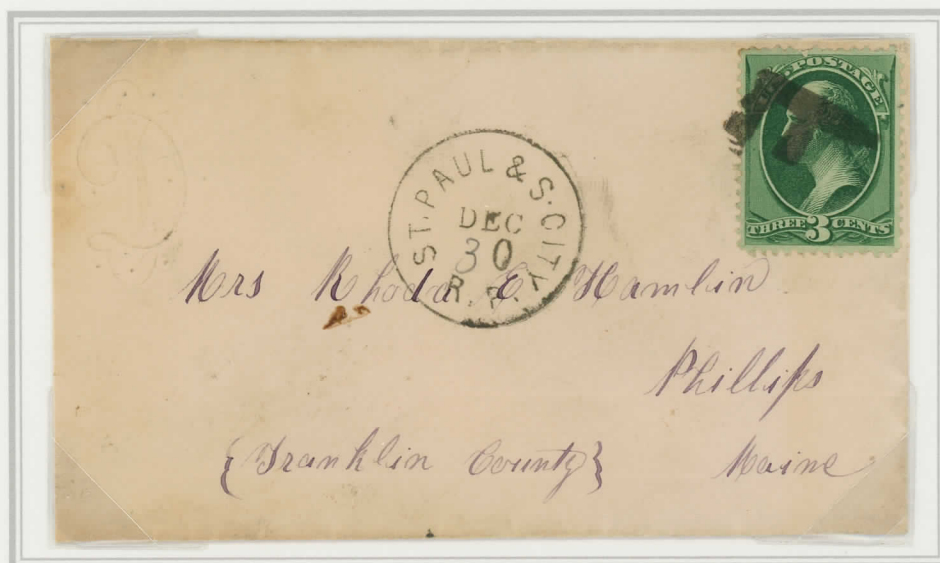 POSTAGE
THREE 3 CENTS
ST. PAUL & S. CITY
DEC
30
R.P.
Mrs Rhoda E. Hamlin
Phillips
{Franklin County} Maine